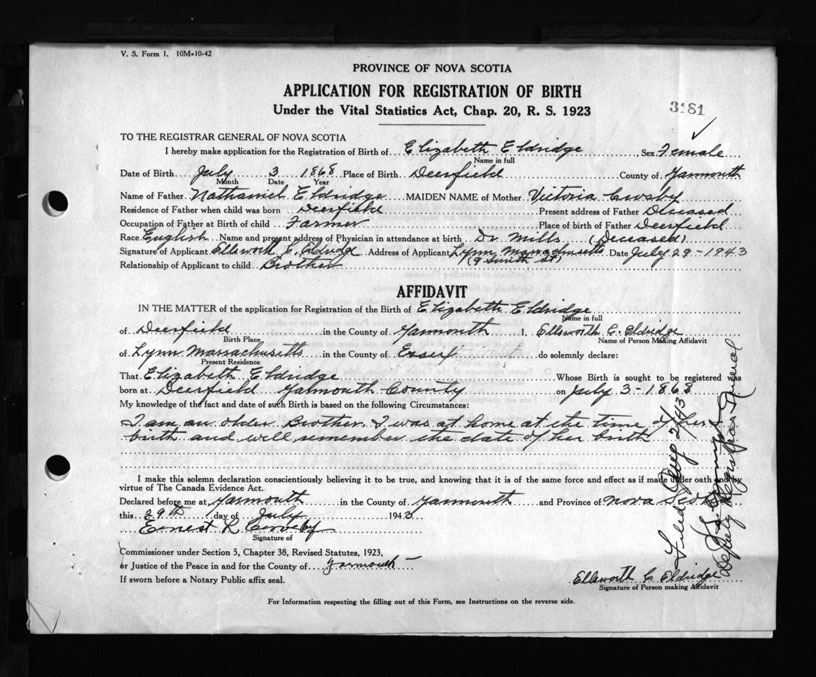 V. S. Form 1. 10M-10-42
PROVINCE OF NOVA SCOTIA
APPLICATION FOR REGISTRATION OF BIRTH
Under the Vital Statistics Act, Chap. 20, R. S. 1923
3181
TO THE REGISTRAR GENERAL OF NOVA SCOTIA
I hereby make application for the Registration of Birth of Elizabeth Eldridge Sex Female
Name in full
Date of Birth July 3 1868 Place of Birth Deerfield County of Yarmouth
Month Date Year
Name of Father Nathaniel Eldridge MAIDEN NAME of Mother Victoria Crosby
Residence of Father when child was born Deerfield Present address of Father Deceased
Occupation of Father at Birth of child Farmer Place of birth of Father Deerfield
Race English Name and present address of Physician in attendance at birth Dr. Mills (Deceased)
Signature of Applicant Ellsworth C. Eldridge Address of Applicant Lynn Massachusetts Date July 29-1943
(9 Smith St)
Relationship of Applicant to child Brother
AFFIDAVIT
IN THE MATTER of the application for Registration of the Birth of Elizabeth Eldridge
Name in full
of Deerfield in the County of Yarmouth I, Ellsworth C. Eldridge
Birth Place Name of Person Making Affidavit
of Lynn Massachusetts in the County of Essex do solemnly declare:
Present Residence
That Elizabeth Eldridge Whose Birth is sought to be registered was
born at Deerfield Yarmouth County on July 3-1868
My knowledge of the fact and date of such Birth is based on the following Circumstances:
I am an older Brother. I was at home at the time of her
birth and will remember the date of her birth
I make this solemn declaration conscientiously believing it to be true, and knowing that it is of the same force and effect as if made under oath and by
virtue of The Canada Evidence Act.
Declared before me at Yarmouth in the County of Yarmouth and Province of Nova Scotia
this 29th day of July 1943
Ernest R Crosby
Signature of
Commissioner under Section 5, Chapter 38, Revised Statutes, 1923,
or Justice of the Peace in and for the County of Yarmouth
If sworn before a Notary Public affix seal.
Ellsworth C. Eldridge
Signature of Person making Affidavit
For Information respecting the filling out of this Form, see Instructions on the reverse side.
Filed Aug 2/43
Deputy Registrar General